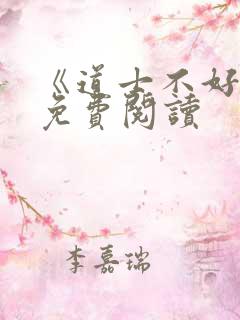 《道士不好
免費閱讀
李嘉瑞